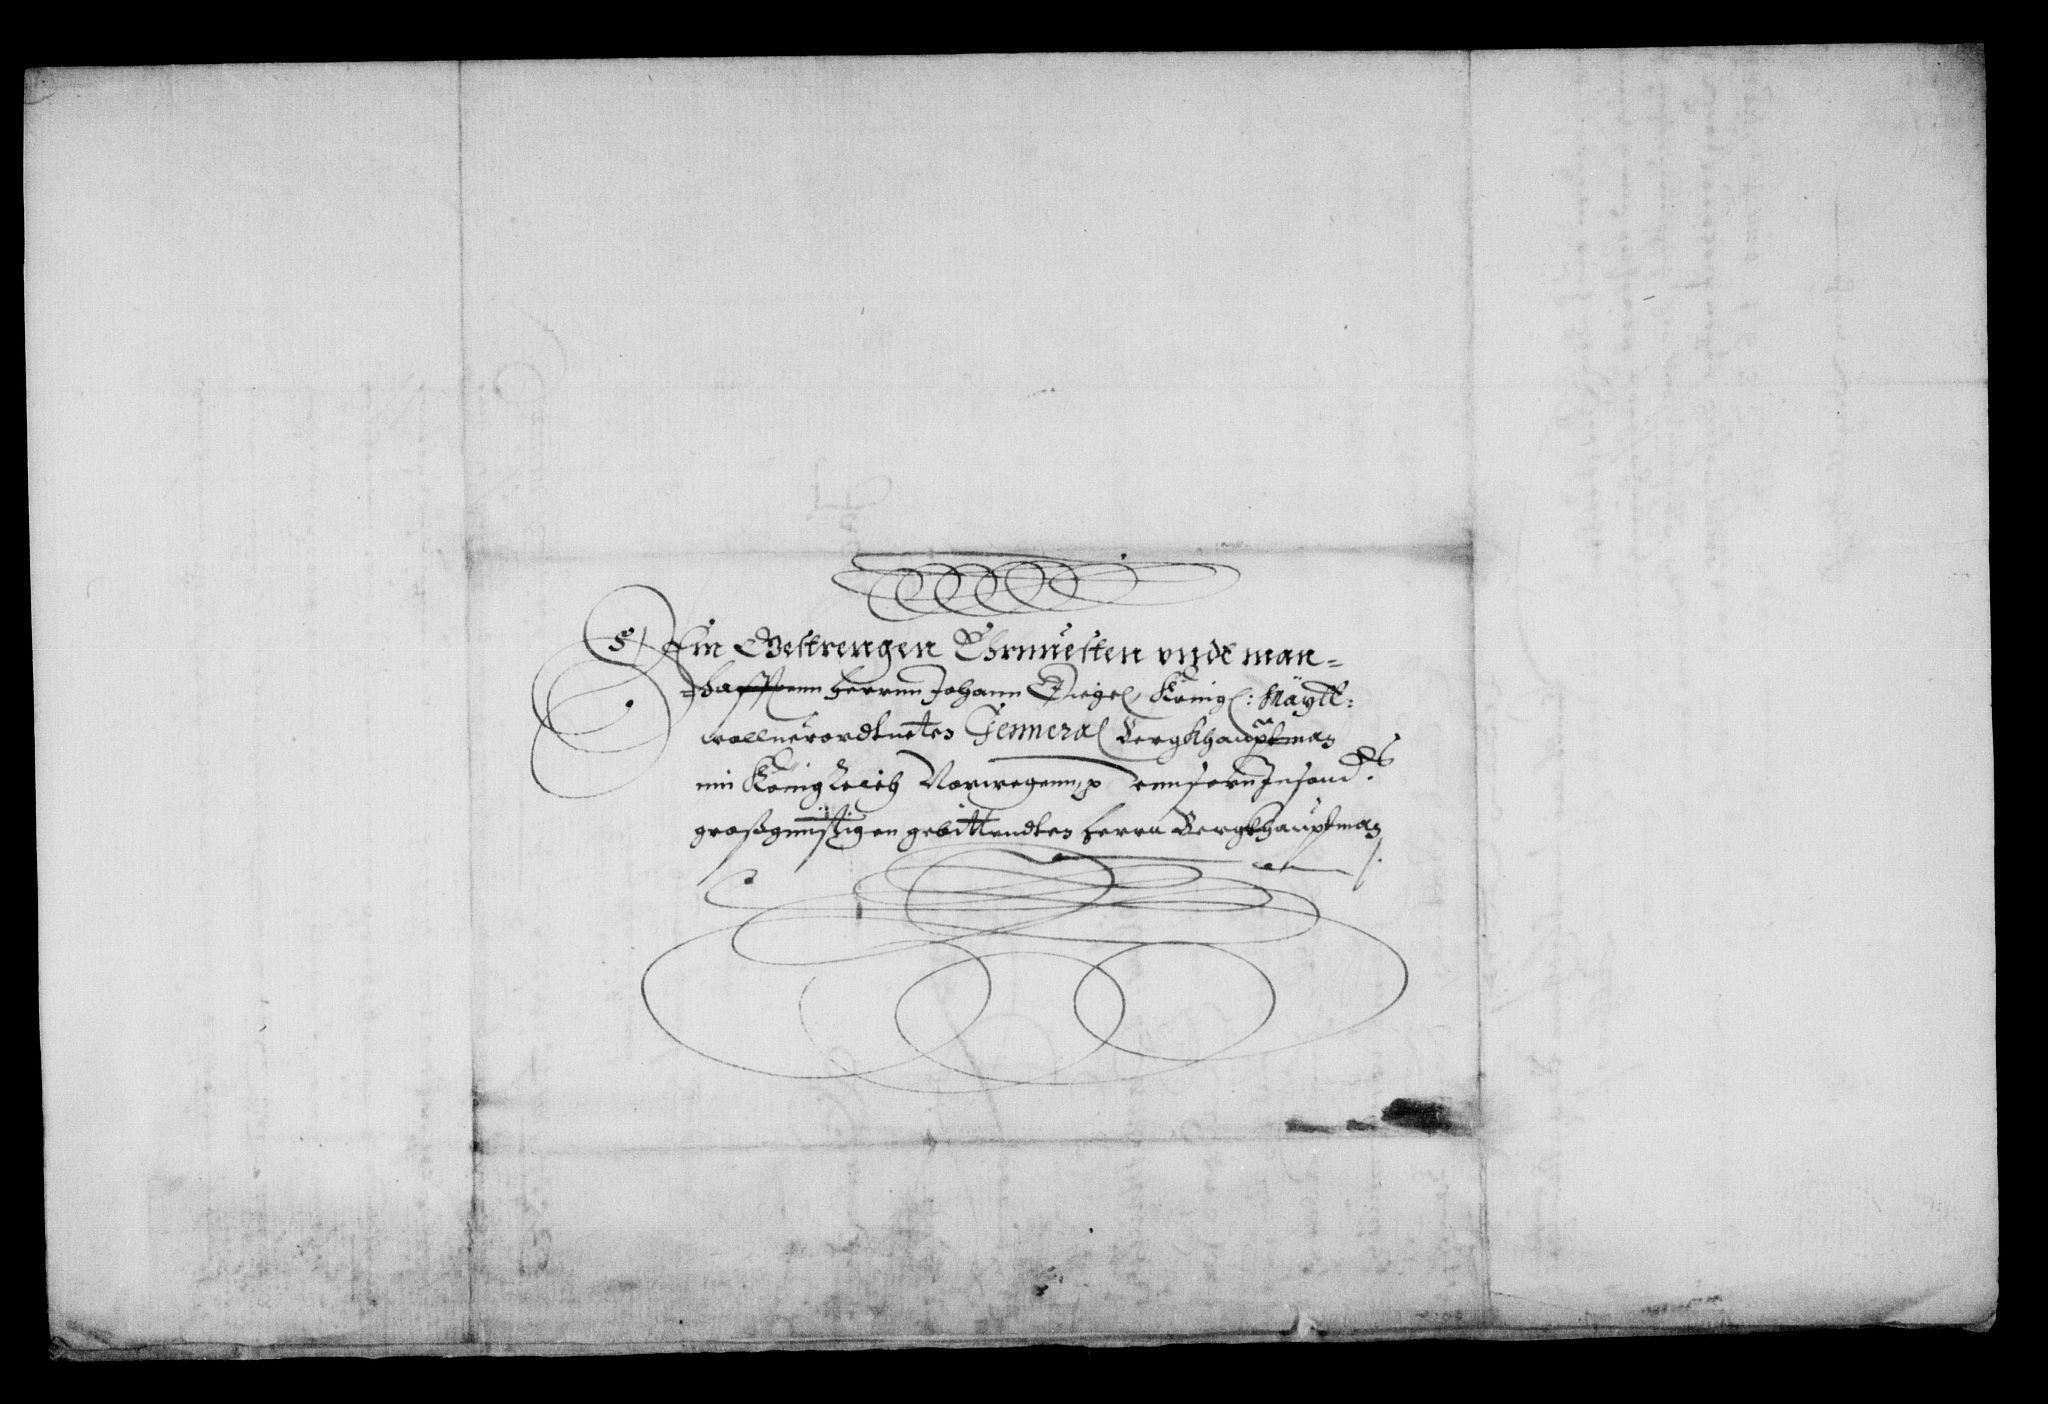 Dem Gestrengen Ehrnuesten vnde man=
=hafftenn herrnn Johann Ziegel, Königl: Mäytt:
wollverordtneten Jenneral Bergkhauptman
inn Königreich Norwegenn, p
großgünstigen gebittendten herrn Bergkhauptman